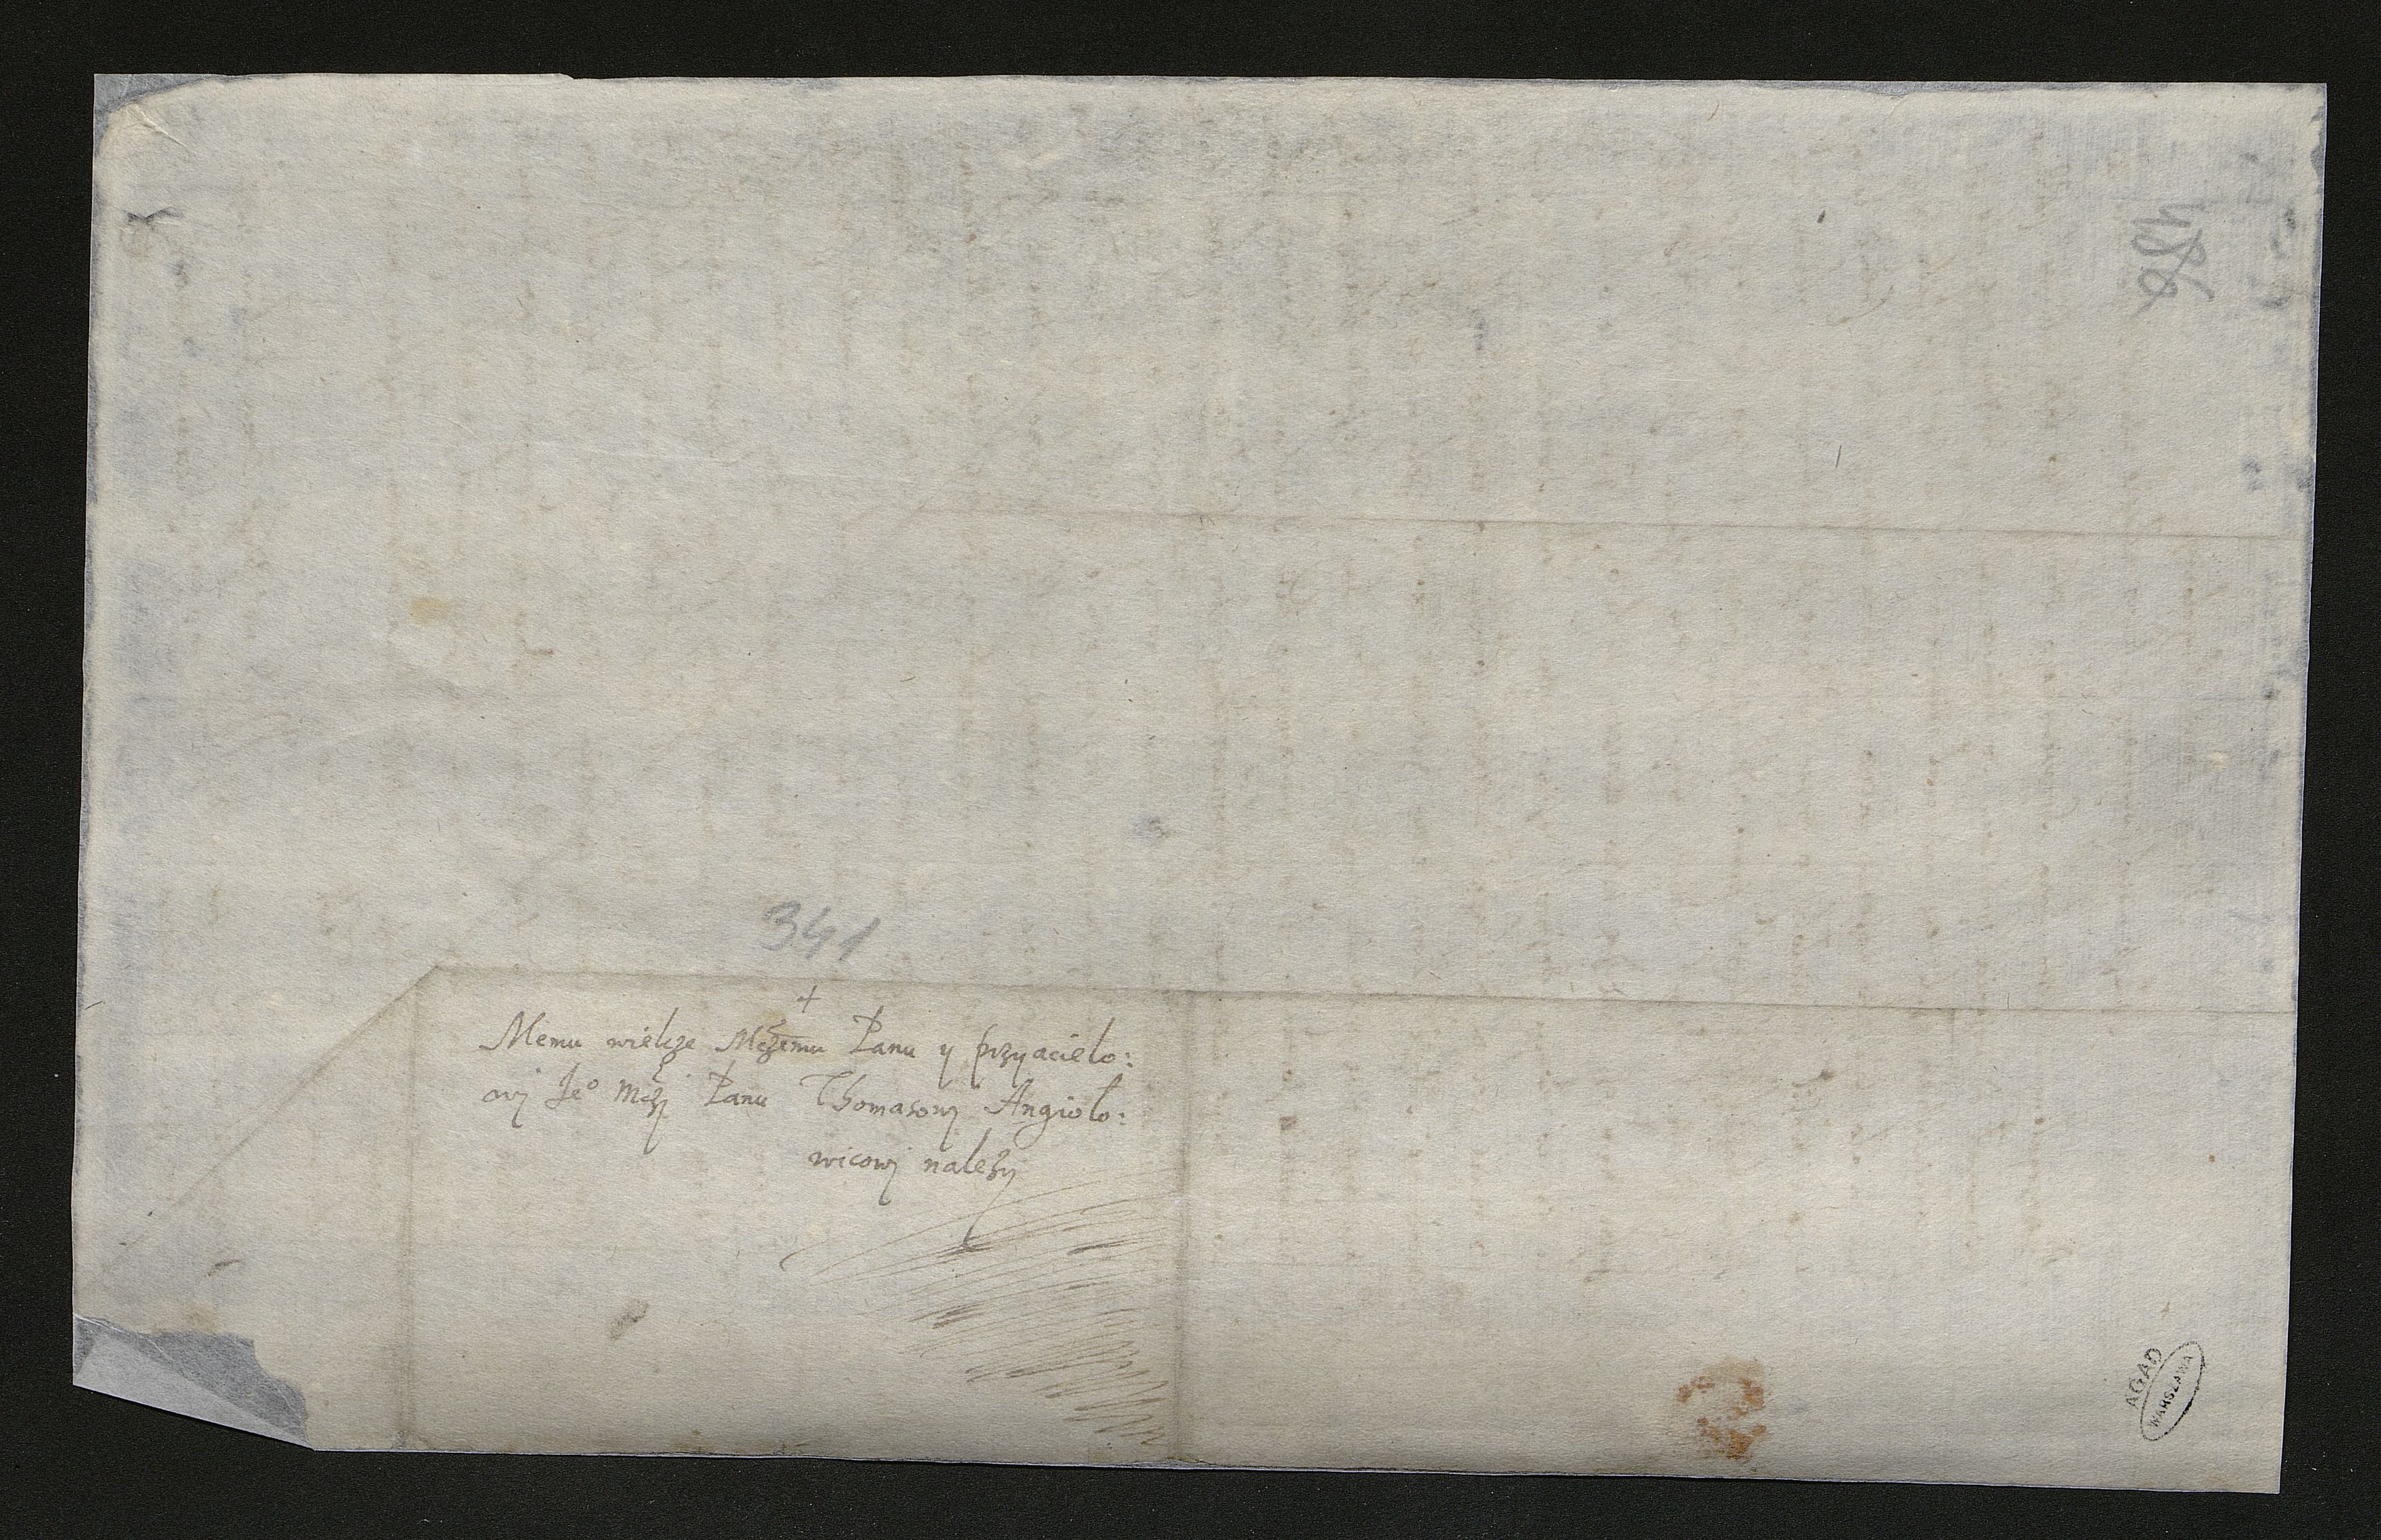 486
341
+
Memu wielcze Mczemu Panu y przyacielo:
owj Jeo Mczj Panu Thomasowj Angiolo:
wicowj należy
AGAD
WARSZAWA